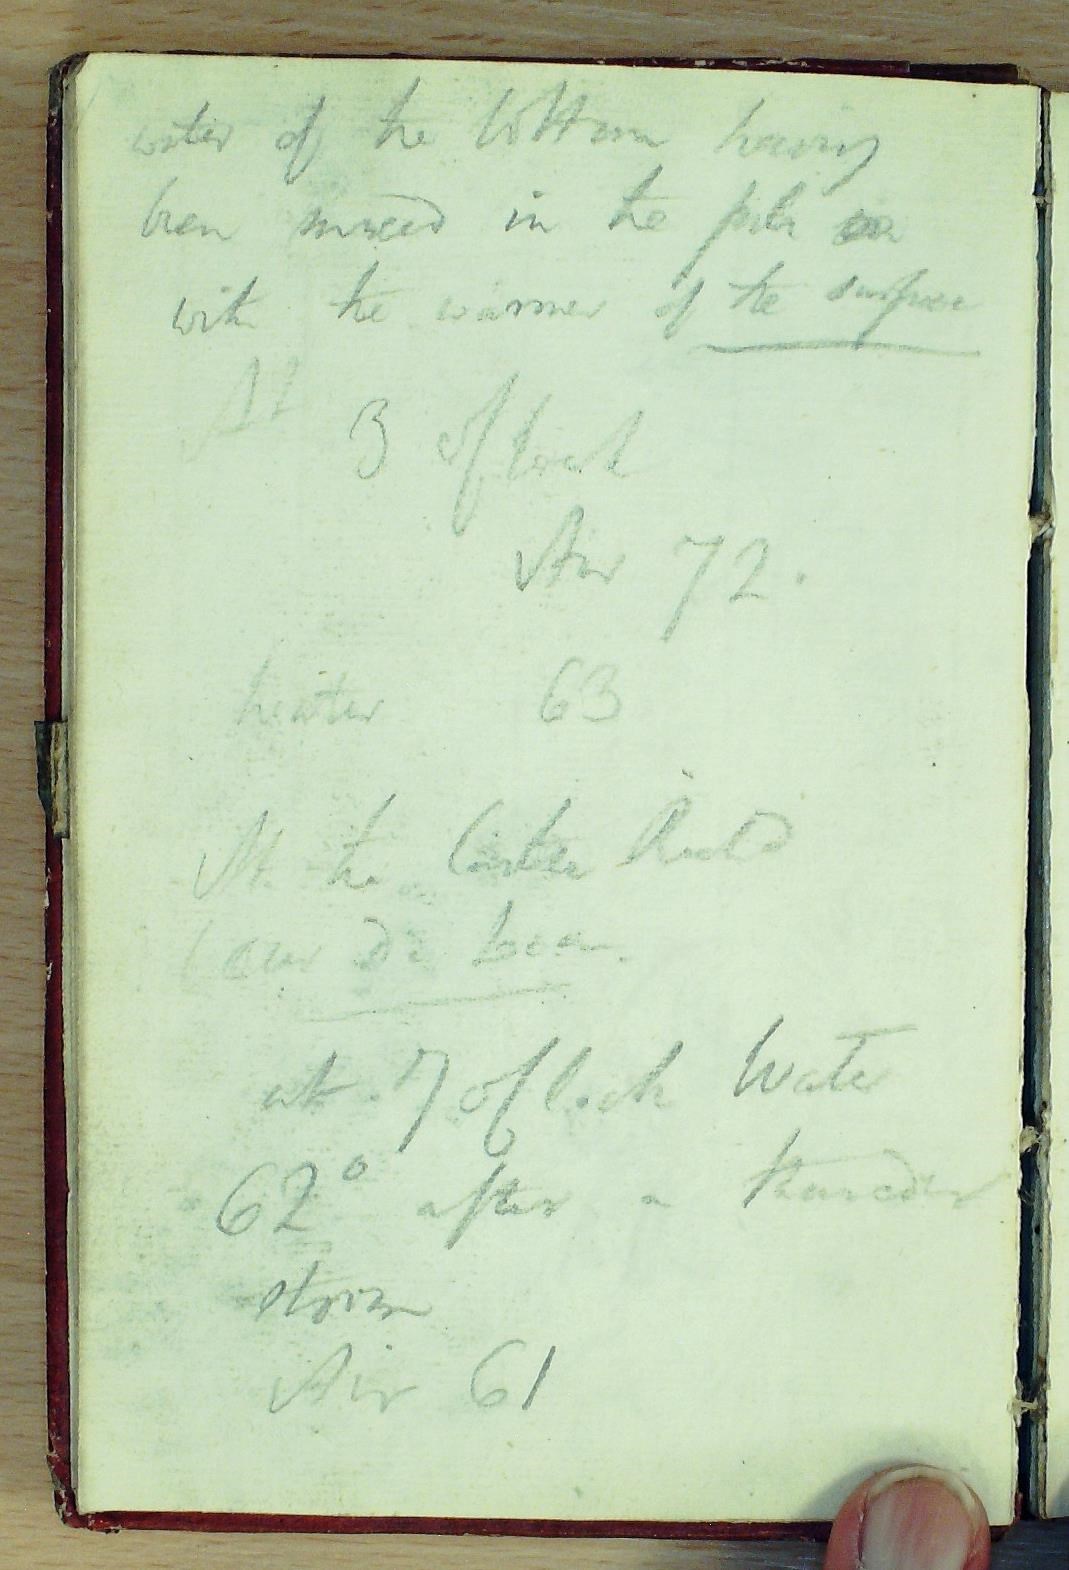 water of the bottom having
been mixed in the
with the warmer of the surface
At 3 oclock
Air 72.
Water 63
At the
at 7 oclock Water
62° after a thunder
storm
Air 61